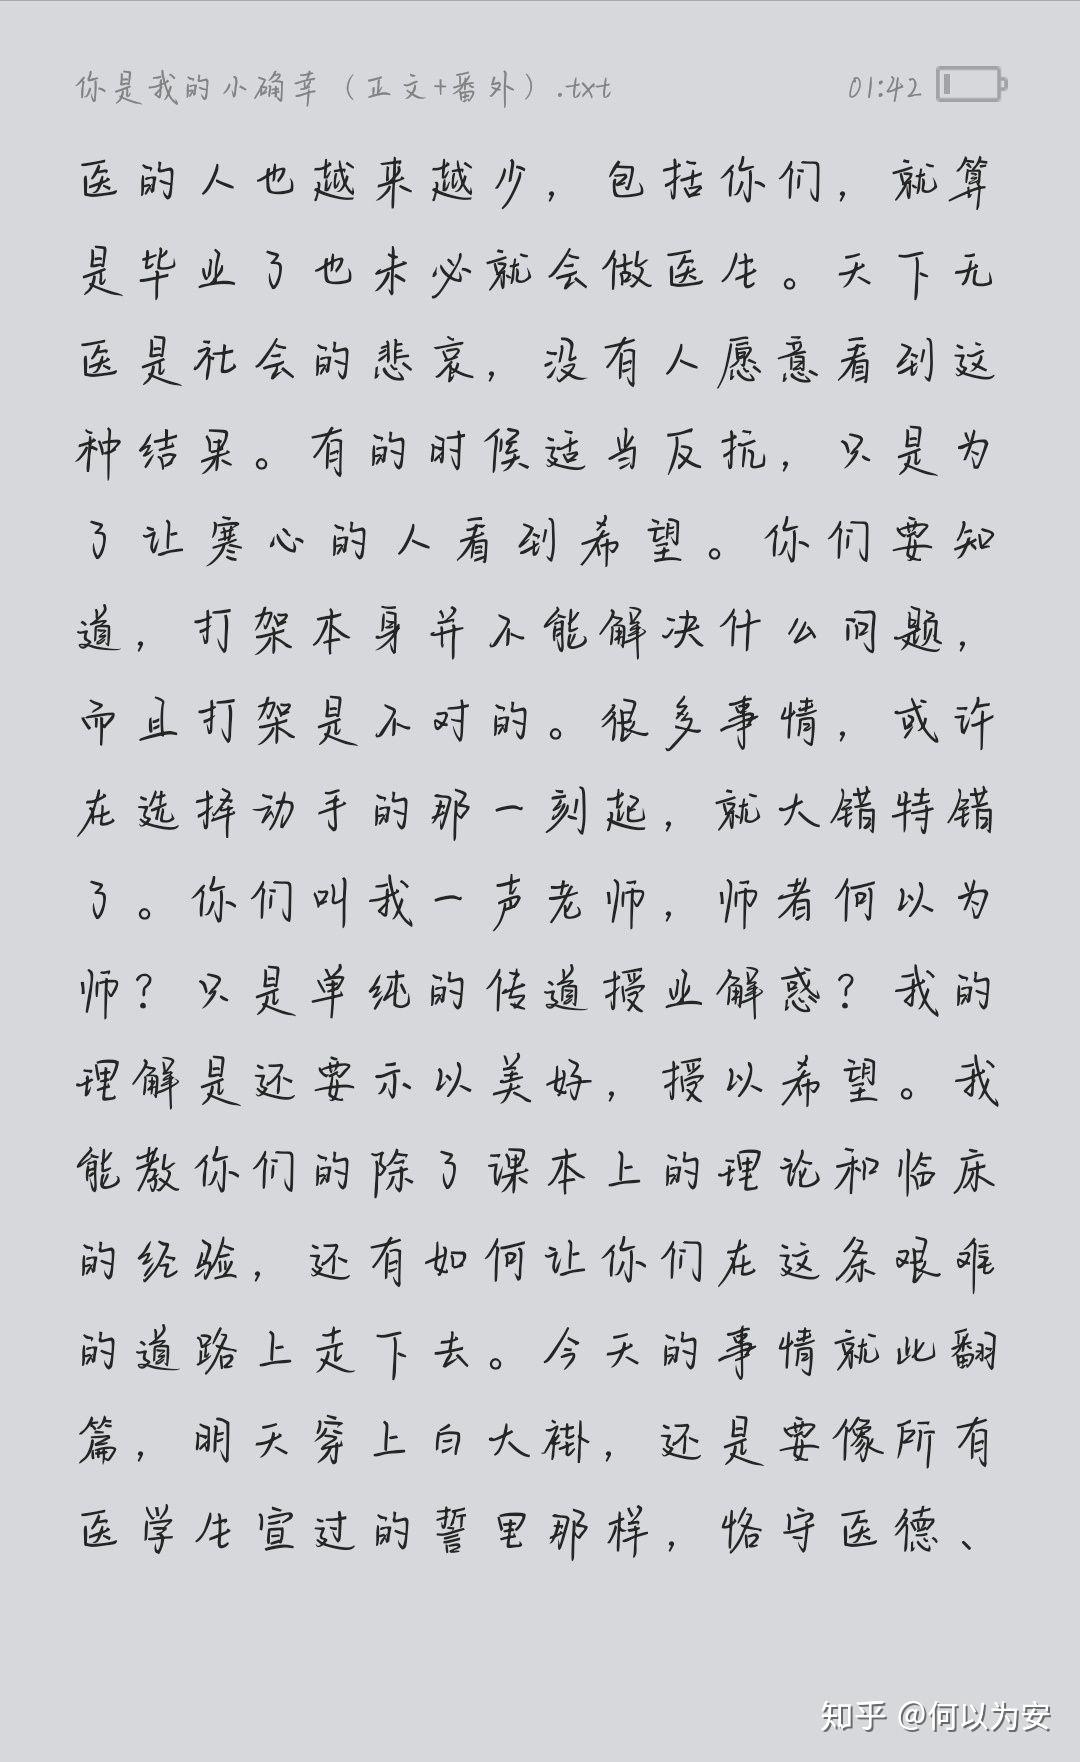 你是我的小确幸（正文+番外）.txt 01:42
医的人也越来越少，包括你们，就算
是毕业了也未必就会做医生。天下无
医是社会的悲哀，没有人愿意看到这
种结果。有的时候适当反抗，只是为
了让寒心的人看到希望。你们要知
道，打架本身并不能解决什么问题，
而且打架是不对的。很多事情，或许
在选择动手的那一刻起，就大错特错
了。你们叫我一声老师，师者何以为
师？只是单纯的传道授业解惑？我的
理解是还要示以美好，授以希望。我
能教你们的除了课本上的理论和临床
的经验，还有如何让你们在这条艰难
的道路上走下去。今天的事情就此翻
篇，明天穿上白大褂，还是要像所有
医学生宣过的誓里那样，恪守医德、
知乎 @何以为安